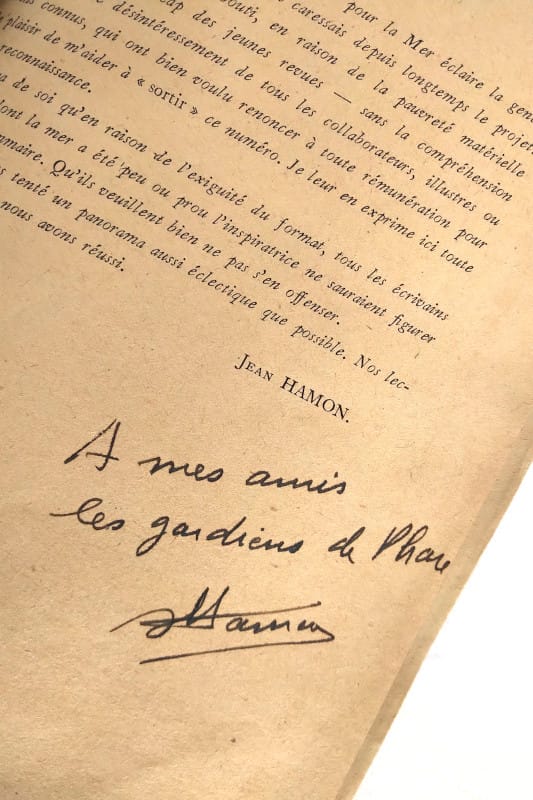 pour la Mer éclaire la
caressais depuis longtemps le projet
outi, en raison de la pauvreté matérielle
cap des jeunes revues — sans la compréhension
désintéressement de tous les collaborateurs, illustres ou
connus, qui ont bien voulu renoncer à toute rémunération pour
plaisir de m'aider à « sortir » ce numéro. Je leur en exprime ici toute
reconnaissance.
a de soi qu'en raison de l'exiguïté du format, tous les écrivains
dont la mer a été peu ou prou l'inspiratrice ne sauraient figurer
mmaire. Qu'ils veuillent bien ne pas s'en offenser.
s tenté un panorama aussi éclectique que possible. Nos lec-
nous avons réussi.
Jean HAMON.
A mes amis
les gardiens de Phare
JHamon